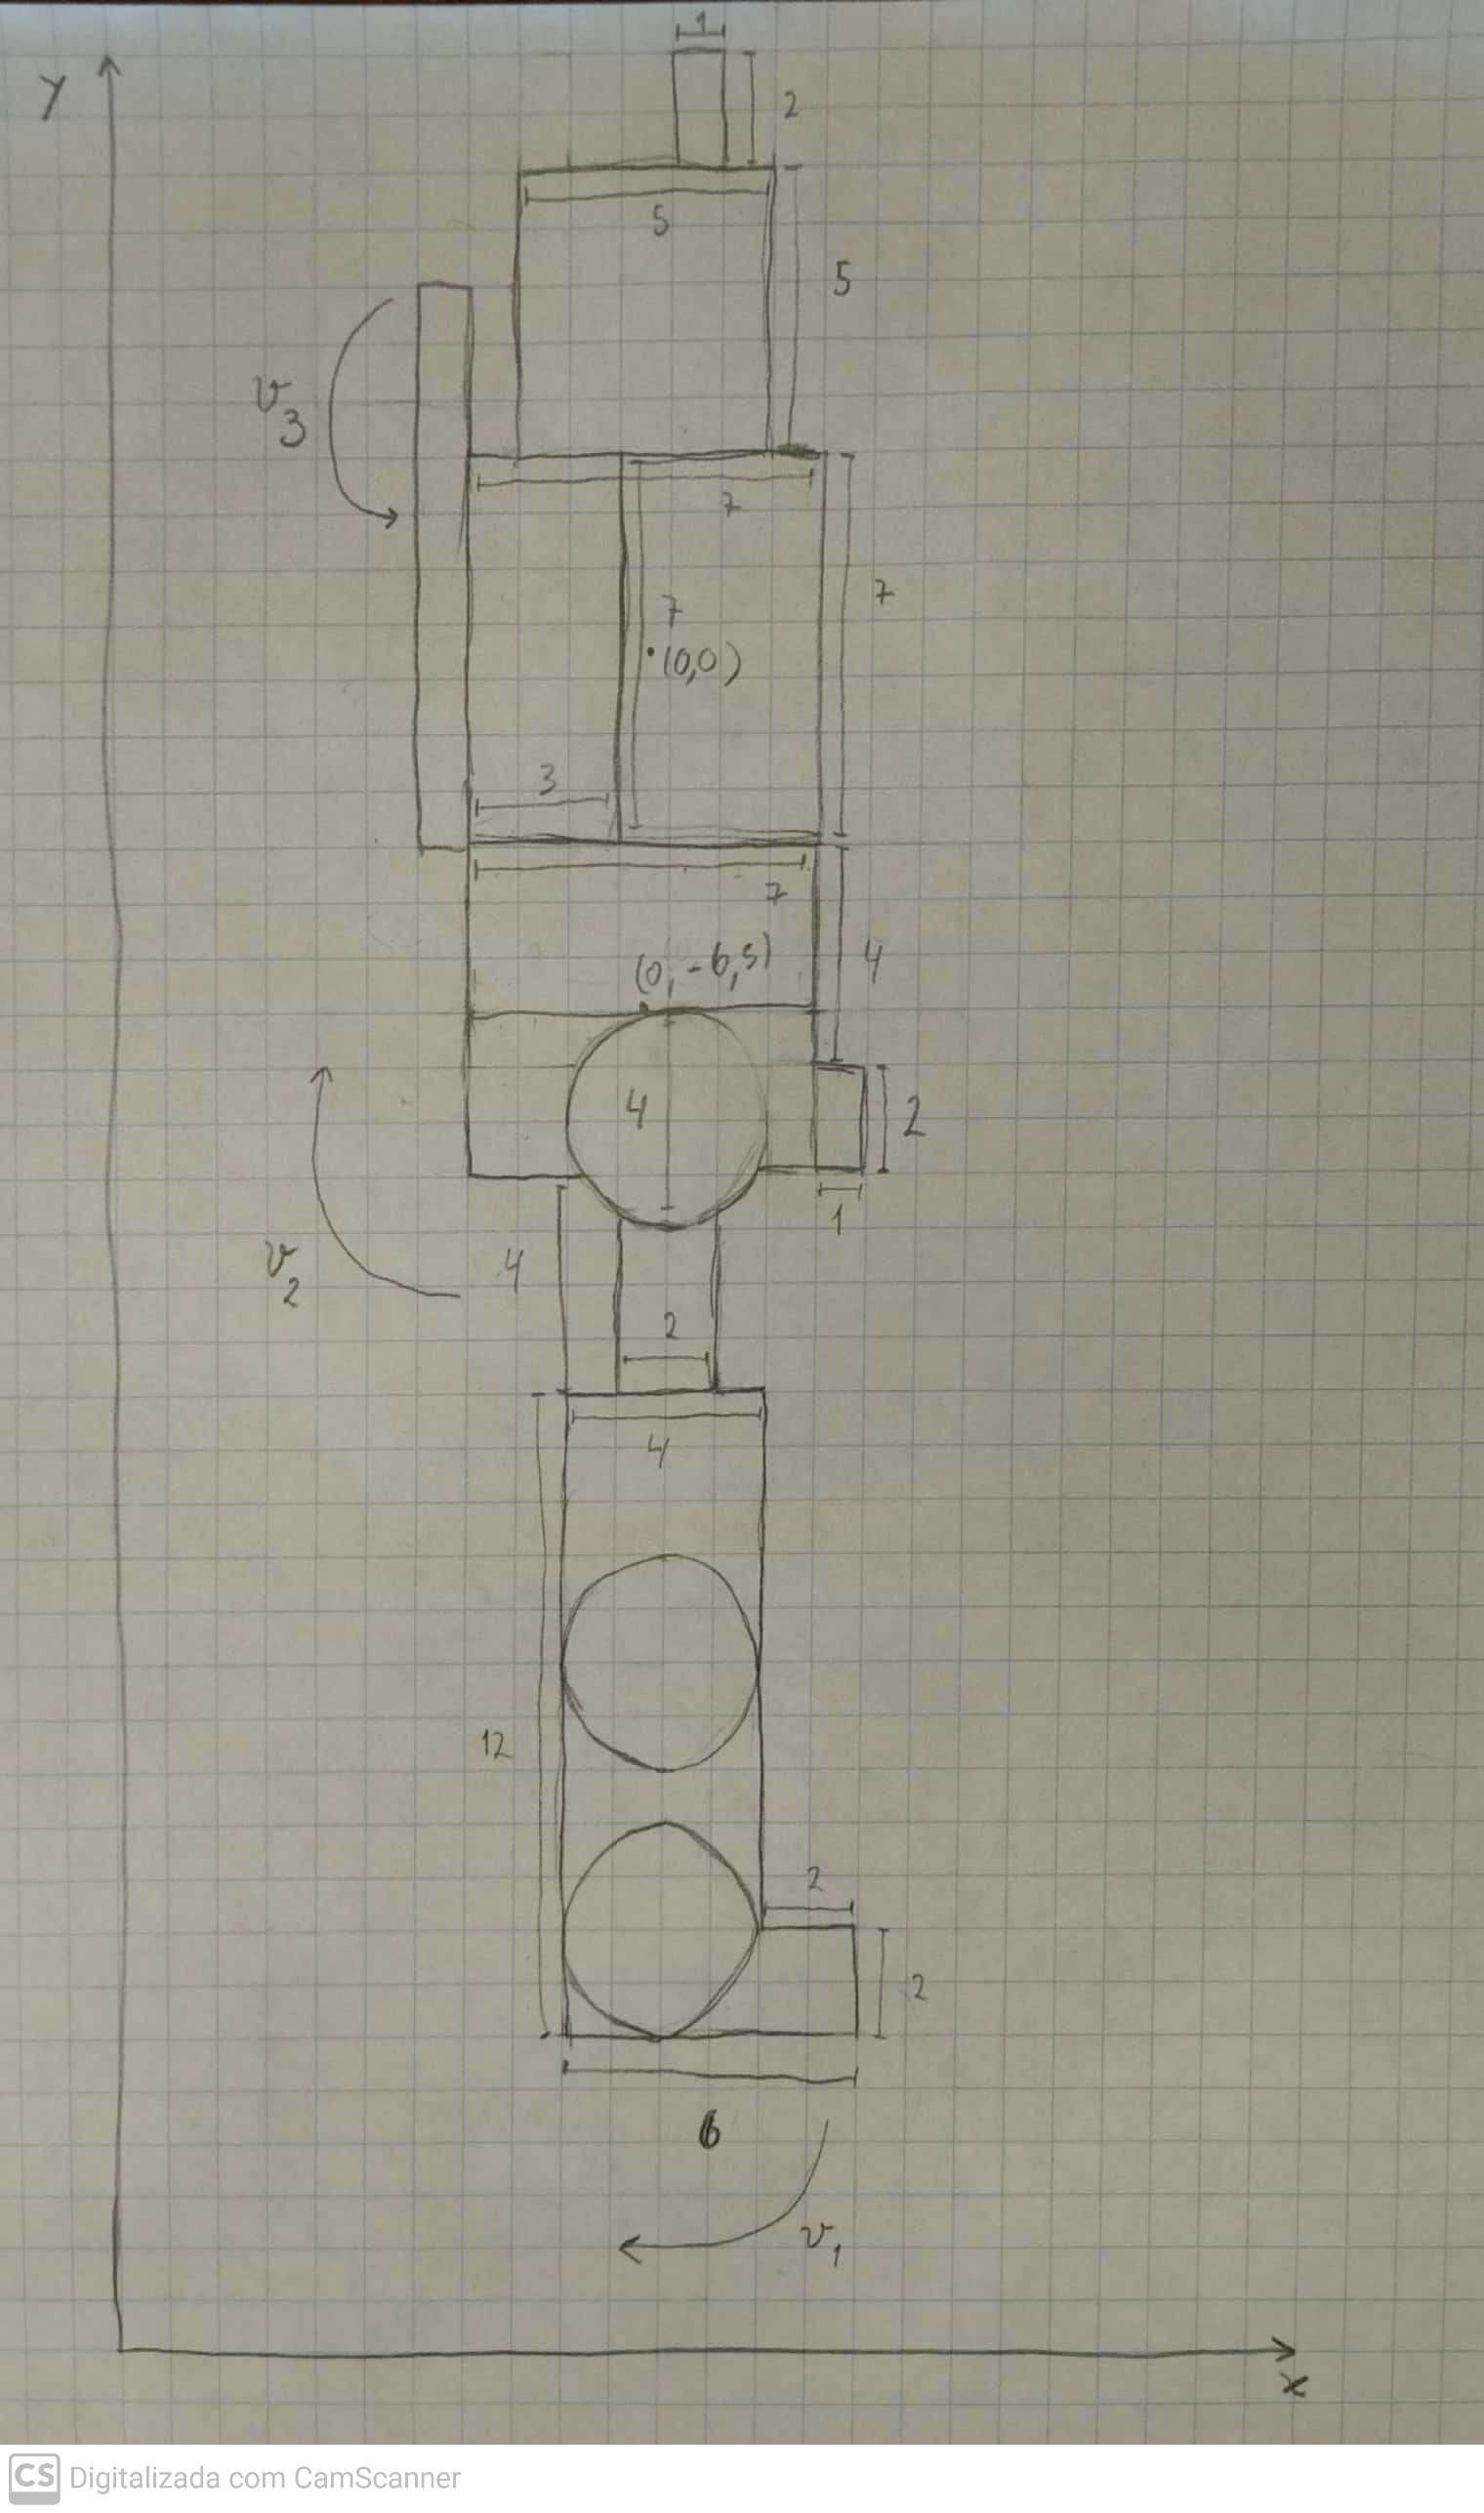 1
y
2
5
5
v3
7
7
7
(0,0)
3
7
(0,-6,5)
4
4
2
1
v2
4
2
4
12
2
2
6
v1
x
CS Digitalizada com CamScanner